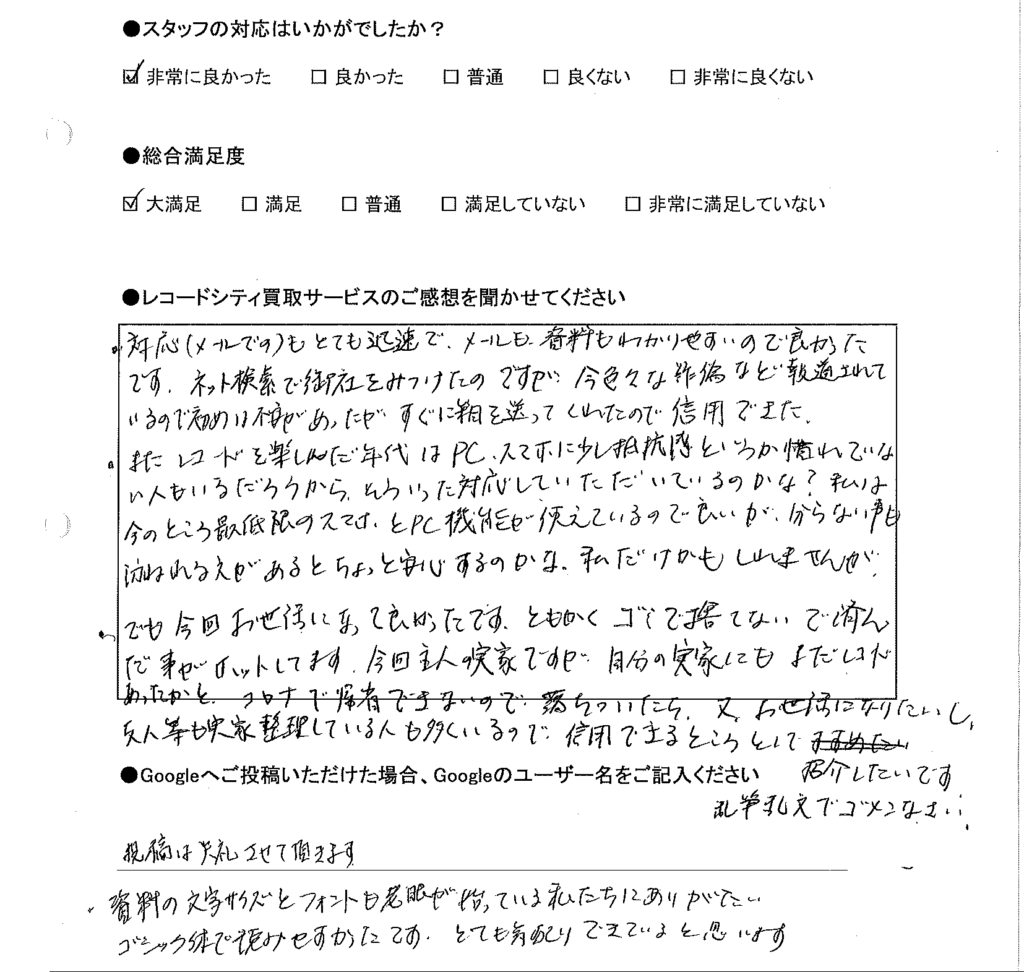 ●スタッフの対応はいかがでしたか？
☑ 非常に良かった □ 良かった □ 普通 □ 良くない □ 非常に良くない
●総合満足度
☑ 大満足 □ 満足 □ 普通 □ 満足していない □ 非常に満足していない
●レコードシティ買取サービスのご感想を聞かせてください
対応(メールでの)もとても迅速で、メールも、資料もわかりやすいので良かった
です。ネット検索で御社をみつけたのですが 今色々な詐偽など報道されて
いるので初めは不審があったが すぐに箱を送ってくれたので信用できた。
またレコードを楽しんだ年代はPC、スマホに少し抵抗感というか慣れていな
い人もいるだろうから、そういった対応していただいているのかな？私は
今のところ最低限のスマホ、とPC機能が使えているので良いが、分らない時も
訊ねれる文があるとちょっと安心するのかな、私だけかもしれませんが。
でも今回お世話になって良かったです。ともかくゴミで捨てないで済ん
だ事がホットしてます。今回主人の実家ですが 自分の実家にもまだレコード
あったかと、コロナで帰省できないので 落ちついたら、又、お世話になりたいし、
友人等も実家整理している人も多くいるので 信用できるところとして すすめたい
紹介したいです
乱筆乱文でゴメンなさい
●Googleへご投稿いただけた場合、Googleのユーザー名をご記入ください
投稿は失礼させて頂きます
資料の文字サイズとフォントも老眼が始っている私たちにありがたい
ゴシック体で読みやすかったです。とても気配りできていると思います